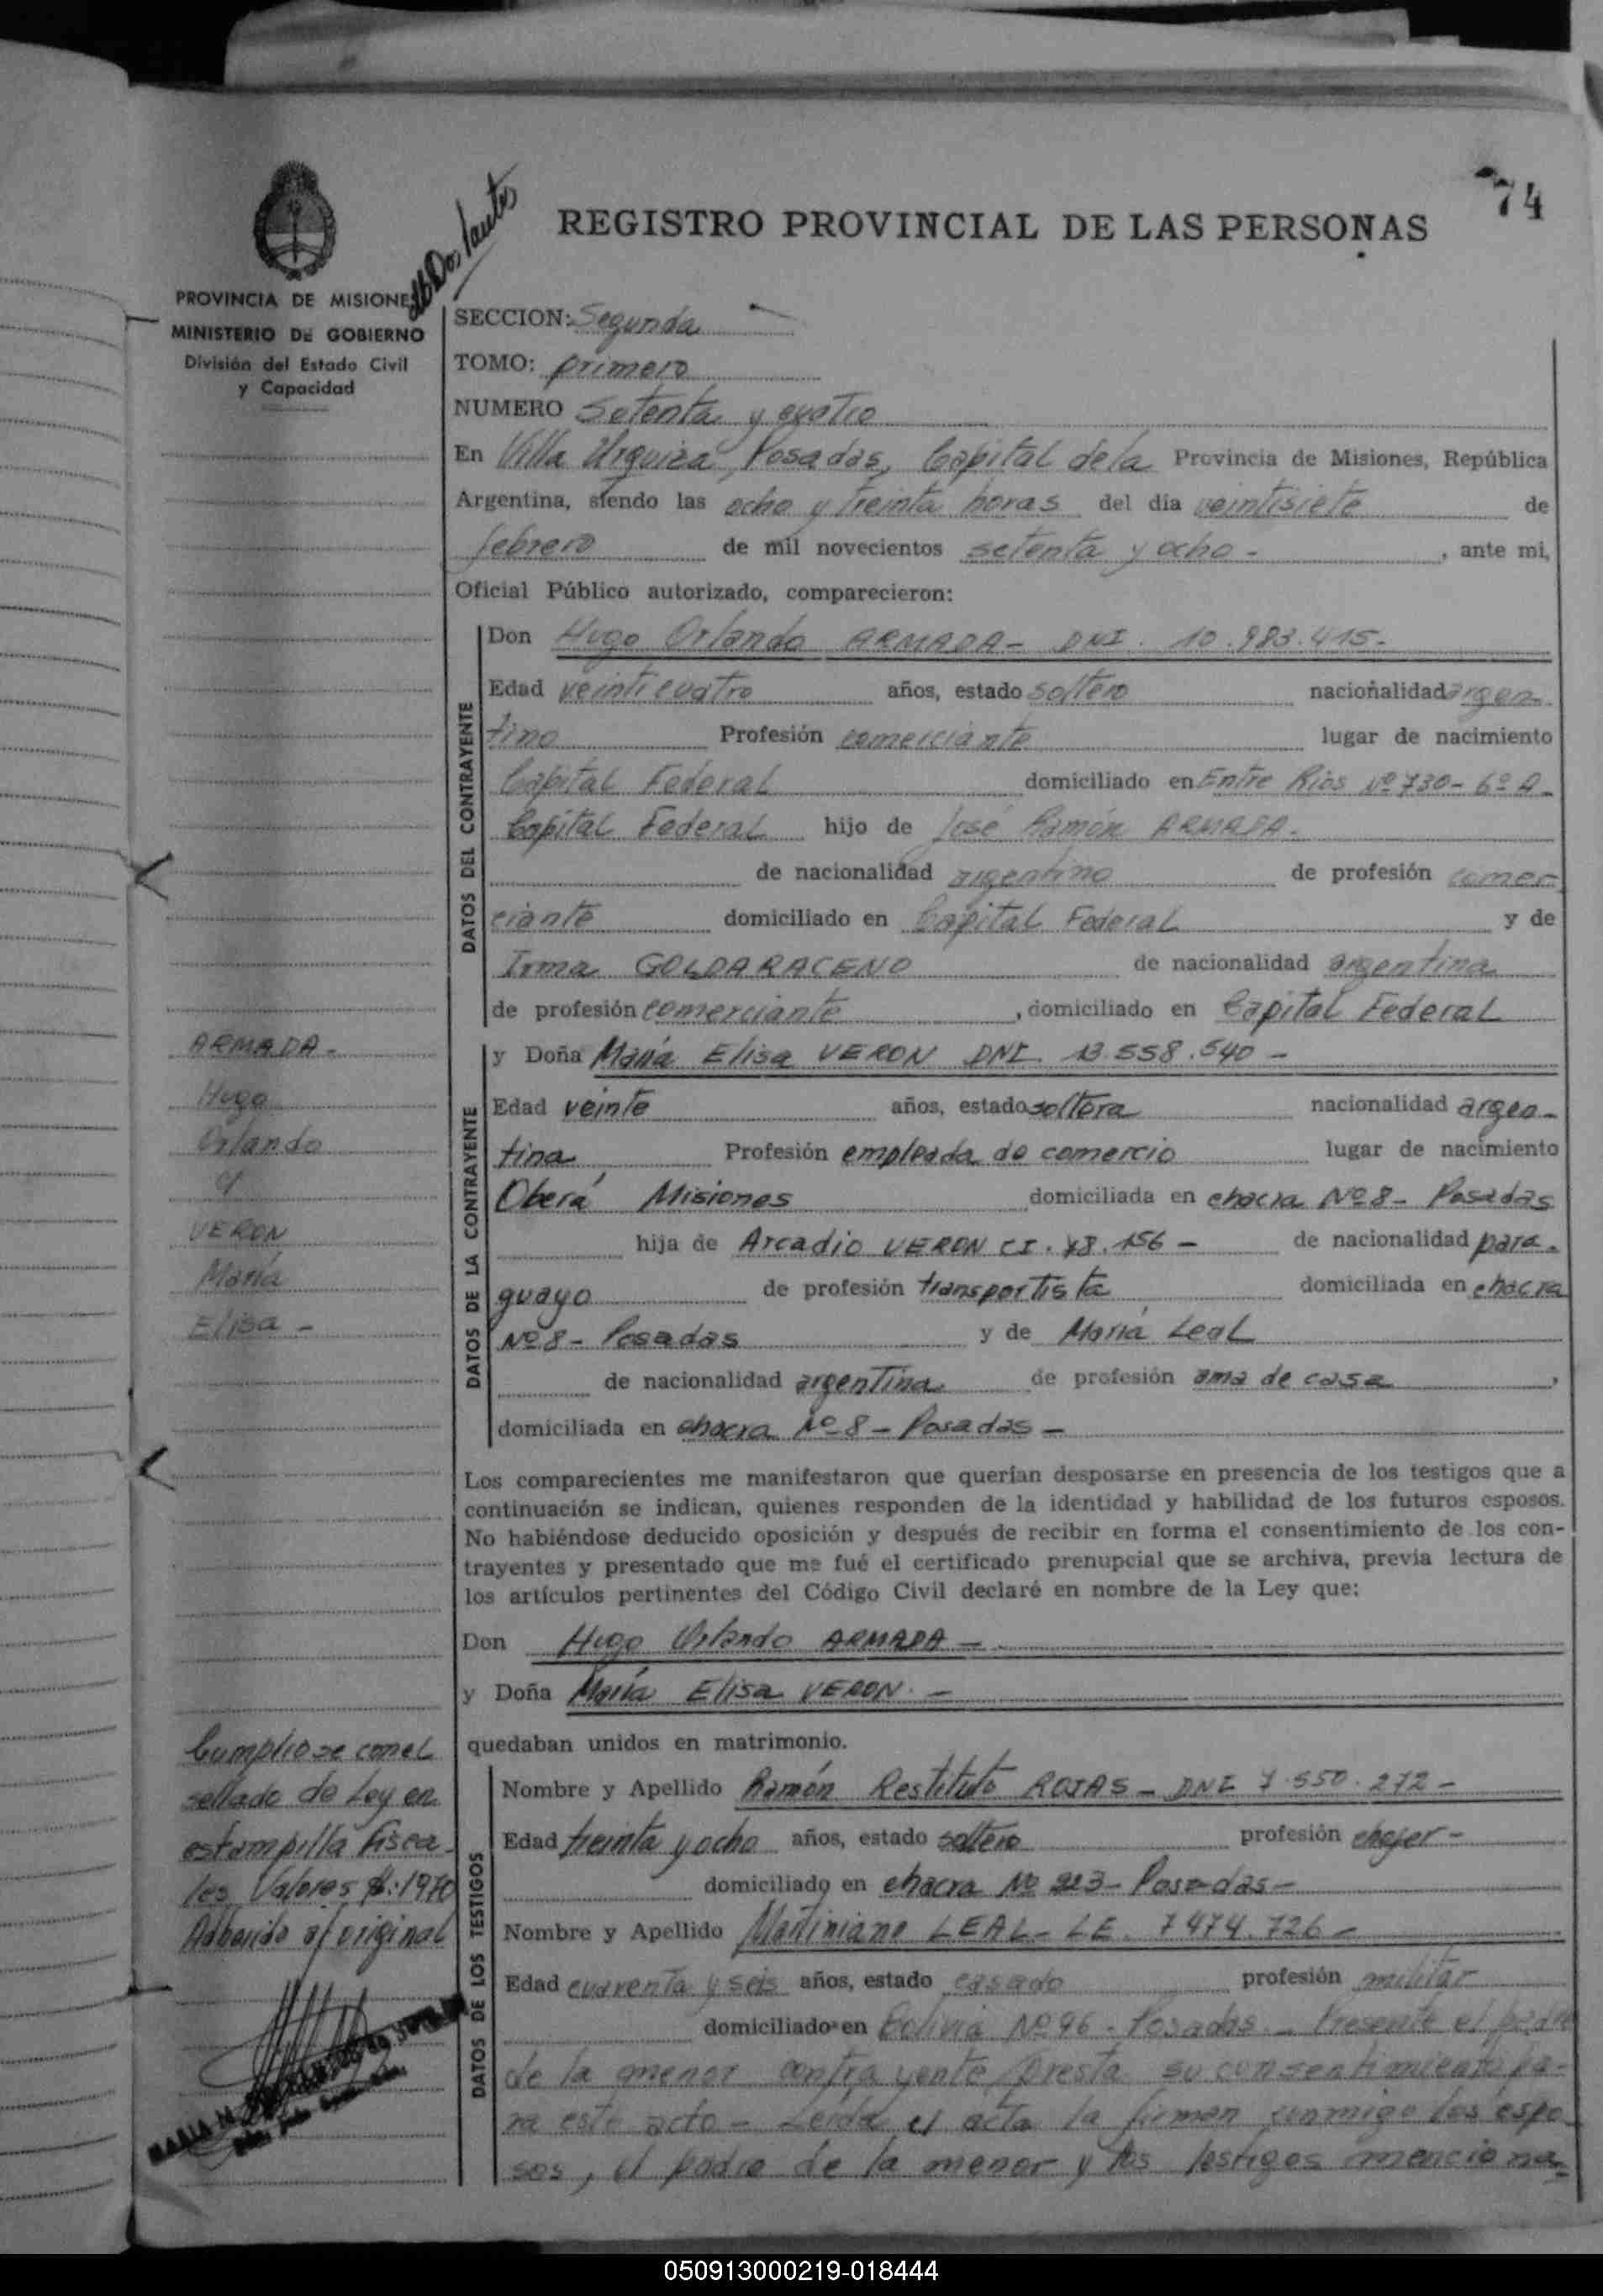 74
REGISTRO PROVINCIAL DE LAS PERSONAS
PROVINCIA DE MISIONES
MINISTERIO DE GOBIERNO
División del Estado Civil
y Capacidad
SECCION: Segunda
TOMO: primero
NUMERO Setenta y cuatro
En Villa Urquiza, Posadas, Capital de la Provincia de Misiones, República
Argentina, siendo las ocho y treinta horas del día veintisiete de
febrero de mil novecientos setenta y ocho - , ante mi,
Oficial Público autorizado, comparecieron:
DATOS DEL CONTRAYENTE
Don Hugo Orlando ARMADA - DNI. 10.983.415.-
Edad veinticuatro años, estado soltero nacionalidad argen
tino Profesión comerciante lugar de nacimiento
Capital Federal domiciliado en Entre Rios Nº 730 - 6º A -
Capital Federal hijo de José Ramón ARMADA.
de nacionalidad argentino de profesión comer
ciante domiciliado en Capital Federal y de
Irma GOLDARACENO de nacionalidad argentina
de profesión comerciante , domiciliado en Capital Federal
DATOS DE LA CONTRAYENTE
y Doña María Elisa VERON DNI. 13.558.540 -
Edad veinte años, estado soltera nacionalidad argen-
tina Profesión empleada de comercio lugar de nacimiento
Oberá Misiones domiciliada en chacra Nº 8 - Posadas
hija de Arcadio VERON CI. 156 - de nacionalidad para-
guayo de profesión transportista domiciliada en chacra
Nº 8 - Posadas y de María Leal
de nacionalidad argentina de profesión ama de casa ,
domiciliada en chacra Nº 8 - Posadas -
ARMADA -
Hugo
Orlando
y
VERON
María
Elisa -
Los comparecientes me manifestaron que querían desposarse en presencia de los testigos que a
continuación se indican, quienes responden de la identidad y habilidad de los futuros esposos.
No habiéndose deducido oposición y después de recibir en forma el consentimiento de los con-
trayentes y presentado que me fué el certificado prenupcial que se archiva, previa lectura de
los artículos pertinentes del Código Civil declaré en nombre de la Ley que:
Don Hugo Orlando ARMADA -
y Doña María Elisa VERON. -
quedaban unidos en matrimonio.
DATOS DE LOS TESTIGOS
Nombre y Apellido Ramón Restituto ROJAS - DNI 7.550.272 -
Edad treinta y ocho años, estado soltero profesión chofer -
domiciliado en chacra Nº 213 - Posadas -
Nombre y Apellido Martiniano LEAL - LE. 7474.726 -
Edad cuarenta y seis años, estado casado profesión militar
domiciliado en Bolivia Nº 96 - Posadas - Presente el padre
de la menor contrayente presta su consentimiento pa-
ra este acto - Leída el acta la firman conmigo los espo
sos, el padre de la menor y los testigos menciona-
Cumpliose con el
sellado de Ley en
estampilla fisca-
les Valores $:1970
Adherido al original
050913000219-018444